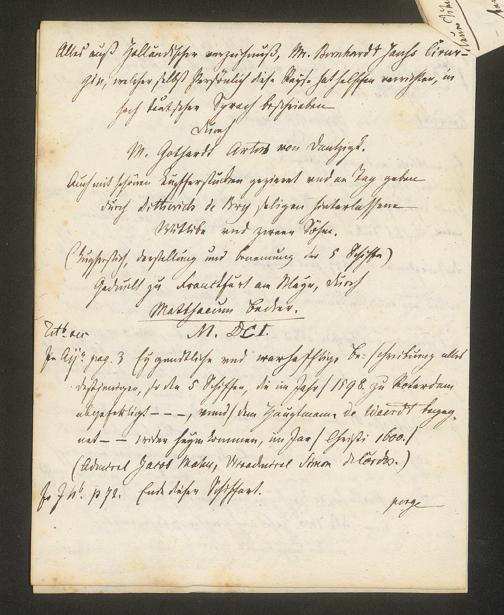 Alles auß Holländischer verzeichnuß, M. Bernhardt Jansz Cirur-
gin, welcher selbst persönlich diese Rayse hat helffen verrichten, in
hoch teutscher Sprach beschrieben
durch
M. Gothardt Artus von Dantzigk.
Auch mit schönen Kupfferstucken gezieret und an Tag geben
durch Ditterichs de Bry seligen hinterlassene
Wittibe und zween Söhn.
( darstellung und benennung der 5 Schiffe)
Gedruckt zu Franckfurt am Mayn, durch
Matthaeum Becker.
M. DCI.
pag. 3 Eygendtliche und warhafftige Be-schreibung alles
desjenigen, so den 5 Schiffen, die im Jahr 1598. zu Roterdam
abgefertigt - - -, wandt dem Hauptmann de Weerdt begeg-
net - - wider heym kommen, im Jar Christi 1600.
(Admiral Jacob Mahu, Viceadmiral Simon de Cordes.)
p 72. Ende dieser Schiffart.